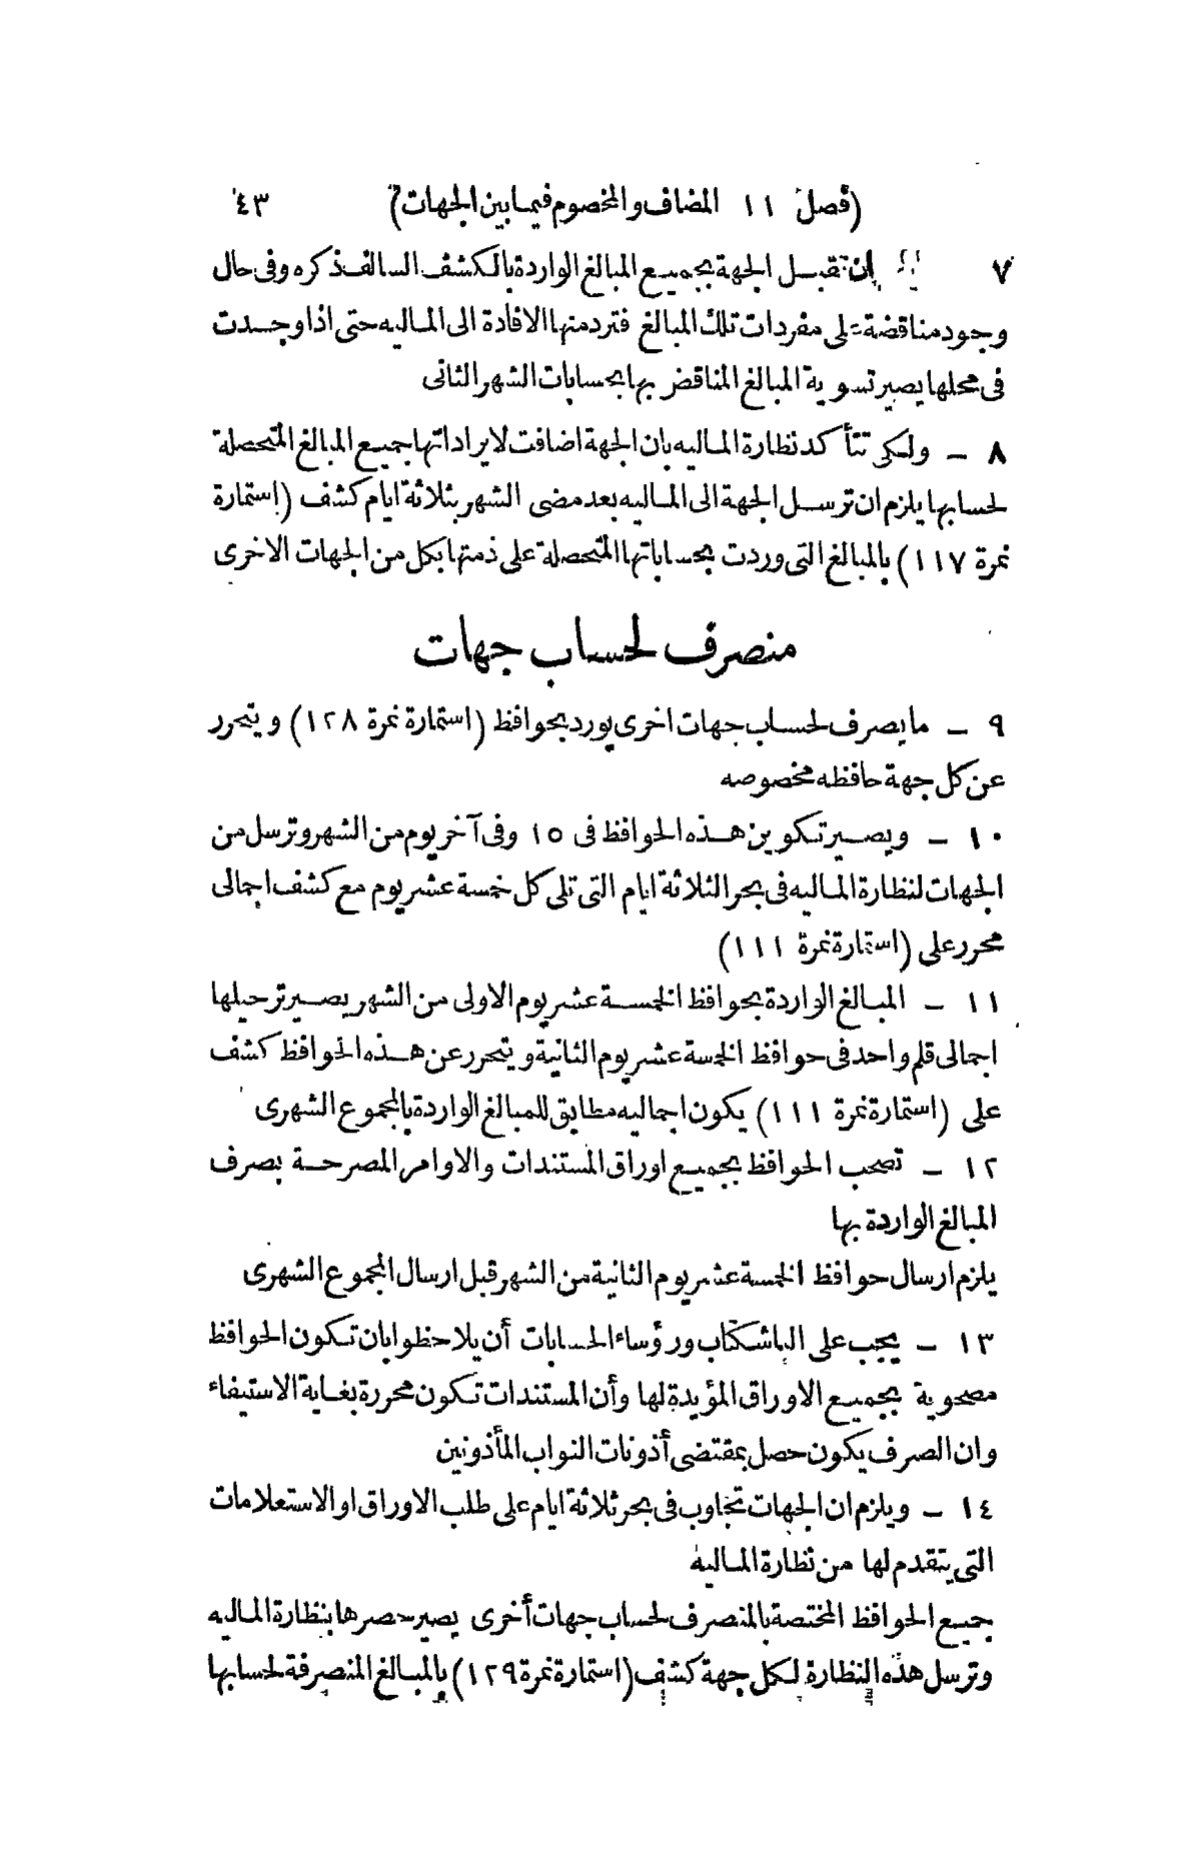 (فصل ١١ المضاف والمخصوم فيمابين الجهات) ٤٣
٧ ان تقبل الجهة بجميع المبالغ الواردة بالكشف السالف ذكره وفى حال
وجود مناقضة على مفردات تلك المبالغ فترد منها الافادة الى الماليه حتى اذا وجدت
فى محلها يصير تسوية المبالغ المناقض بها بحسابات الشهر الثانى
٨ – ولكى تتأكد نظارة الماليه بان الجهة اضافت لايراداتها جميع المبالغ المتحصلة
لحسابها يلزم ان ترسل الجهة الى الماليه بعد مضى الشهر بثلاثة ايام كشف (استمارة
نمرة ١١٧) بالمبالغ التى وردت بحساباتها المتحصلة على ذمتها بكل من الجهات الاخرى
منصرف لحساب جهات
٩ – ما يصرف لحساب جهات اخرى يورد بحوافظ (استمارة نمرة ١٢٨) ويتحرر
عن كل جهة حافظه مخصوصه
١٠ – ويصير تكوين هذه الحوافظ فى ١٥ وفى آخر يوم من الشهر وترسل من
الجهات لنظارة الماليه فى بحر الثلاثة ايام التى تلى كل خمسة عشر يوم مع كشف اجمالى
محرر على (استمارة نمرة ١١١)
١١ – المبالغ الواردة بحوافظ الخمسة عشر يوم الاولى من الشهر يصير ترحيلها
اجمالى قلم واحد فى حوافظ الخمسة عشر يوم الثانية ويتحرر عن هذه الحوافظ كشف
على (استمارة نمرة ١١١) يكون اجماليه مطابق للمبالغ الواردة بالمجموع الشهرى
١٢ – تصحب الحوافظ بجميع اوراق المستندات والاوامر المصرحة بصرف
المبالغ الواردة بها
يلزم ارسال حوافظ الخمسة عشر يوم الثانية من الشهر قبل ارسال المجموع الشهرى
١٣ – يجب على الباشكتاب ورؤساء الحسابات أن يلاحظوا بان تكون الحوافظ
مصحوبة بجميع الاوراق المؤيدة لها وأن المستندات تكون محررة بغاية الاستيفاء
وان الصرف يكون حصل بمقتضى أذونات النواب المأذونين
١٤ – ويلزم ان الجهات تجاوب فى بحر ثلاثة ايام على طلب الاوراق او الاستعلامات
التى يتقدم لها من نظارة الماليه
جميع الحوافظ المختصة بالمنصرف لحساب جهات أخرى يصير حصرها بنظارة الماليه
وترسل هذه النظارة لكل جهة كشف (استمارة نمرة ١٢٩) بالمبالغ المنصرفة لحسابها